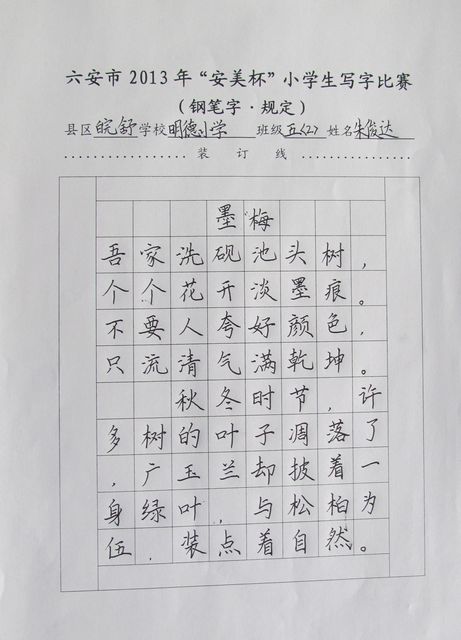 六安市2013年“安美杯”小学生写字比赛
（钢笔字·规定）
县区皖舒学校明德小学 班级五〈2〉姓名朱俊达
装 订 线
墨梅
吾家洗砚池头树，
个个花开淡墨痕。
不要人夸好颜色，
只流清气满乾坤。
秋冬时节，许
多树的叶子凋落了
，广玉兰却披着一
身绿叶，与松柏为
伍，装点着自然。